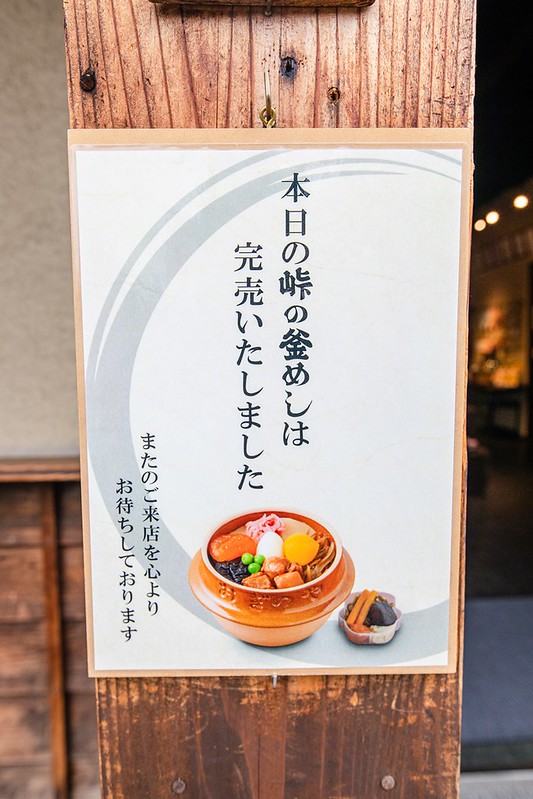 本日の峠の釜めしは
完売いたしました
またのご来店を心より
お待ちしております